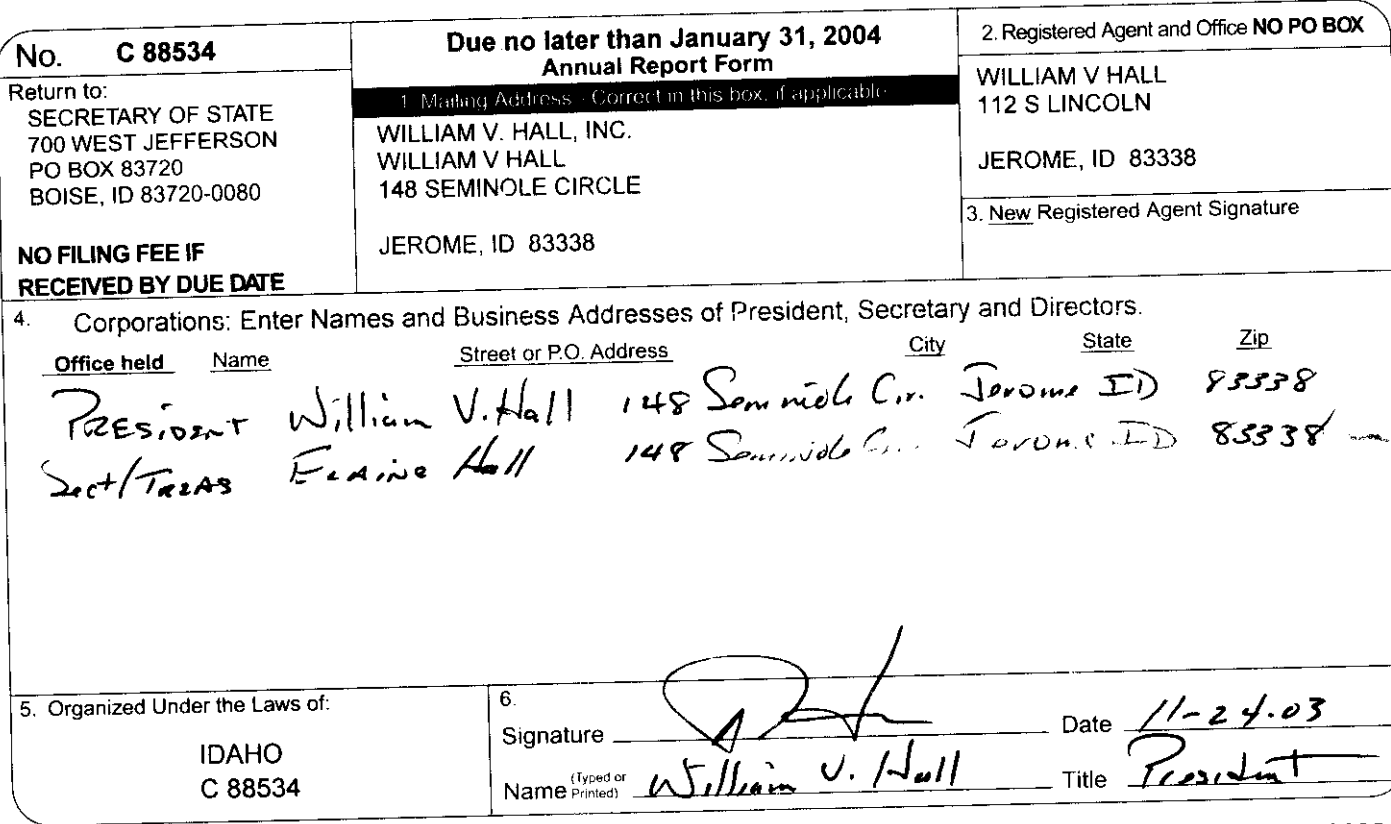 No. C 88534
Return to:
SECRETARY OF STATE
700 WEST JEFFERSON
PO BOX 83720
BOISE, ID 83720-0080
NO FILING FEE IF
RECEIVED BY DUE DATE
Due no later than January 31, 2004
Annual Report Form
1. Mailing Address - Correct in this box, if applicable
WILLIAM V. HALL, INC.
WILLIAM V HALL
148 SEMINOLE CIRCLE
JEROME, ID 83338
2. Registered Agent and Office NO PO BOX
WILLIAM V HALL
112 S LINCOLN
JEROME, ID 83338
3. New Registered Agent Signature
4. Corporations: Enter Names and Business Addresses of President, Secretary and Directors.
Office held Name Street or P.O. Address City State Zip
PRESIDENT William V. Hall 148 Seminole Cir. Jerome ID 83338
Sect/TREAS ELAINE Hall 148 Seminole Cir. Jerome ID 83338
5. Organized Under the Laws of:
IDAHO
C 88534
6.
Signature Date 11-24-03
Name (Typed or Printed) William V. Hall Title President